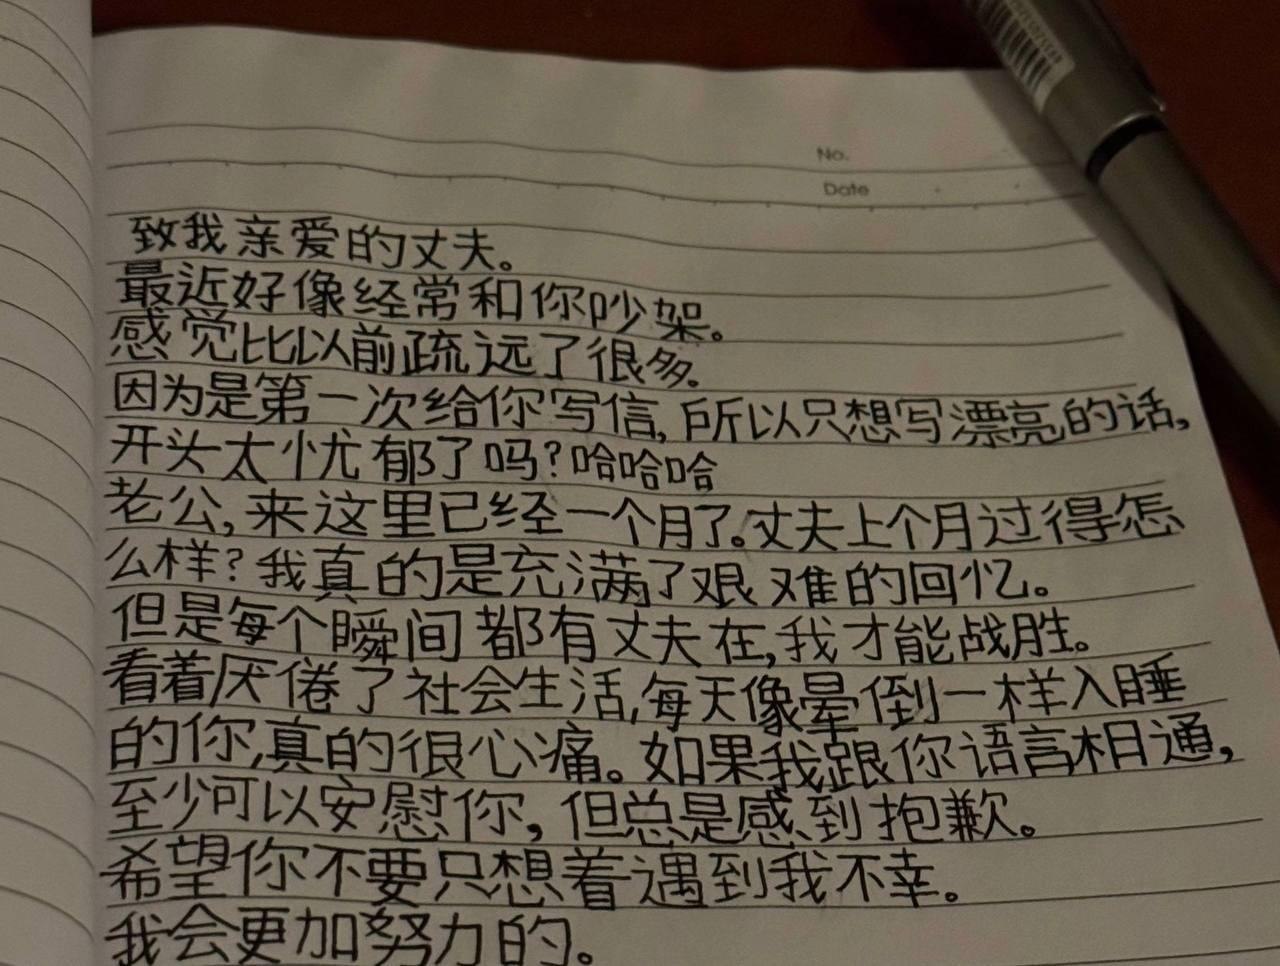 No.
Date
致我亲爱的丈夫。
最近好像经常和你吵架。
感觉比以前疏远了很多.
因为是第一次给你写信,所以只想写漂亮的话,
开头太忧郁了吗?哈哈哈
老公,来这里已经一个月了。丈夫上个月过得怎
么样?我真的是充满了艰难的回忆。
但是每个瞬间都有丈夫在,我才能战胜。
看着厌倦了社会生活,每天像晕倒一样入睡
的你,真的很心痛。如果我跟你语言相通,
至少可以安慰你,但总是感到抱歉。
希望你不要只想着遇到我不幸。
我会更加努力的。